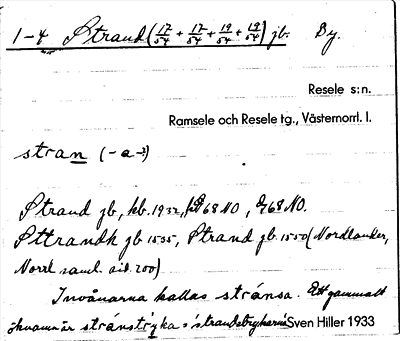 1-4 Strand (17/54 + 17/54 + 19/54 + 19/54) jb. By.
Resele s:n.
Ramsele och Resele tg., Västernorrl. l.
stran (-a-)
Strand jb, kb. 1932, 68 NO, 68 NO.
Sttrandh jb 1535, Strand jb. 1550 (Nordlander,
Norrl saml. sid. 200)
Invånarna kallas stránsa. Ett gammalt
öknamn är stránstryka = 'strandstrykarna' Sven Hiller 1933